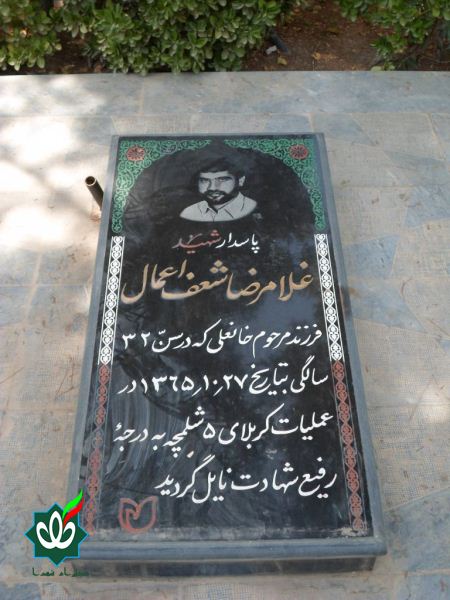 پاسدار شهید
غلامرضا شعف اعمال
فرزند مرحوم خانعلی که در سنّ ۳۲
سالگی بتاریخ ۱۳۶۵٫۱۰٫۲۷ در
عملیات کربلای ۵ شلمچه به درجهٔ
رفیع شهادت نایل گردید